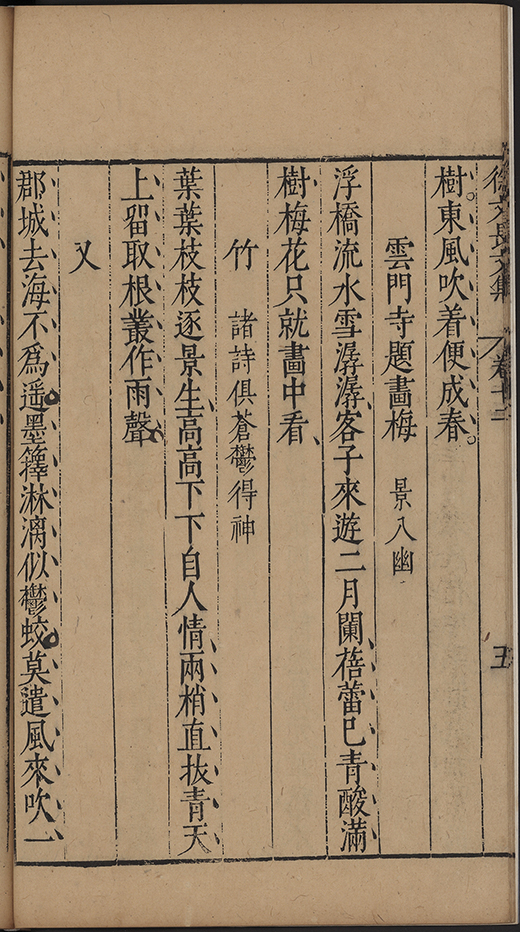 徐文長文集 卷十二 五
樹東風吹着便成春
雲門寺題畫梅 景入幽
浮橋流水雪潺潺客子來遊二月闌蓓蕾已青酸滿
樹梅花只就畫中看
竹 諸詩俱蒼鬱得神
葉葉枝枝逐景生高高下下自人情兩梢直拔青天
上留取根叢作雨聲
又
郡城去海不爲遥墨籜淋漓似鬱蛟莫遣風來吹一